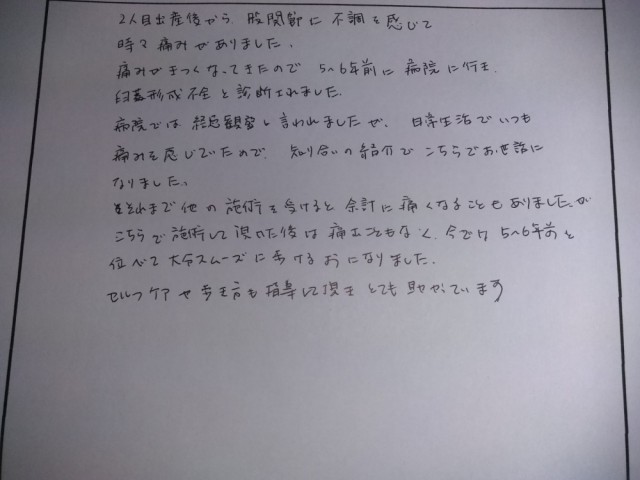 2人目出産後から、股関節に不調を感じて
時々痛みがありました。
痛みがきつくなってきたので 5~6年前に病院に行き、
臼蓋形成不全と診断されました。
病院では経過観察と言われましたが、日常生活でいつも
痛みを感じていたので、知り合いの紹介でこちらでお世話に
なりました。
それまで他の施術を受けると余計に痛くなることもありましたが
こちらで施術して頂いた後は痛むこともなく、今では5~6年前と
位べて大分スムーズに歩けるようになりました。
セルフケアや歩き方も指導して頂き とても助かっています